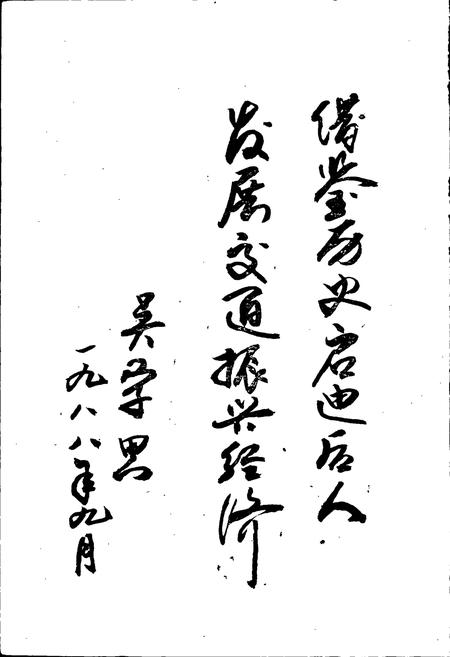 借鉴历史启迪后人
发展交通振兴经济
吴学思
一九八八年九月